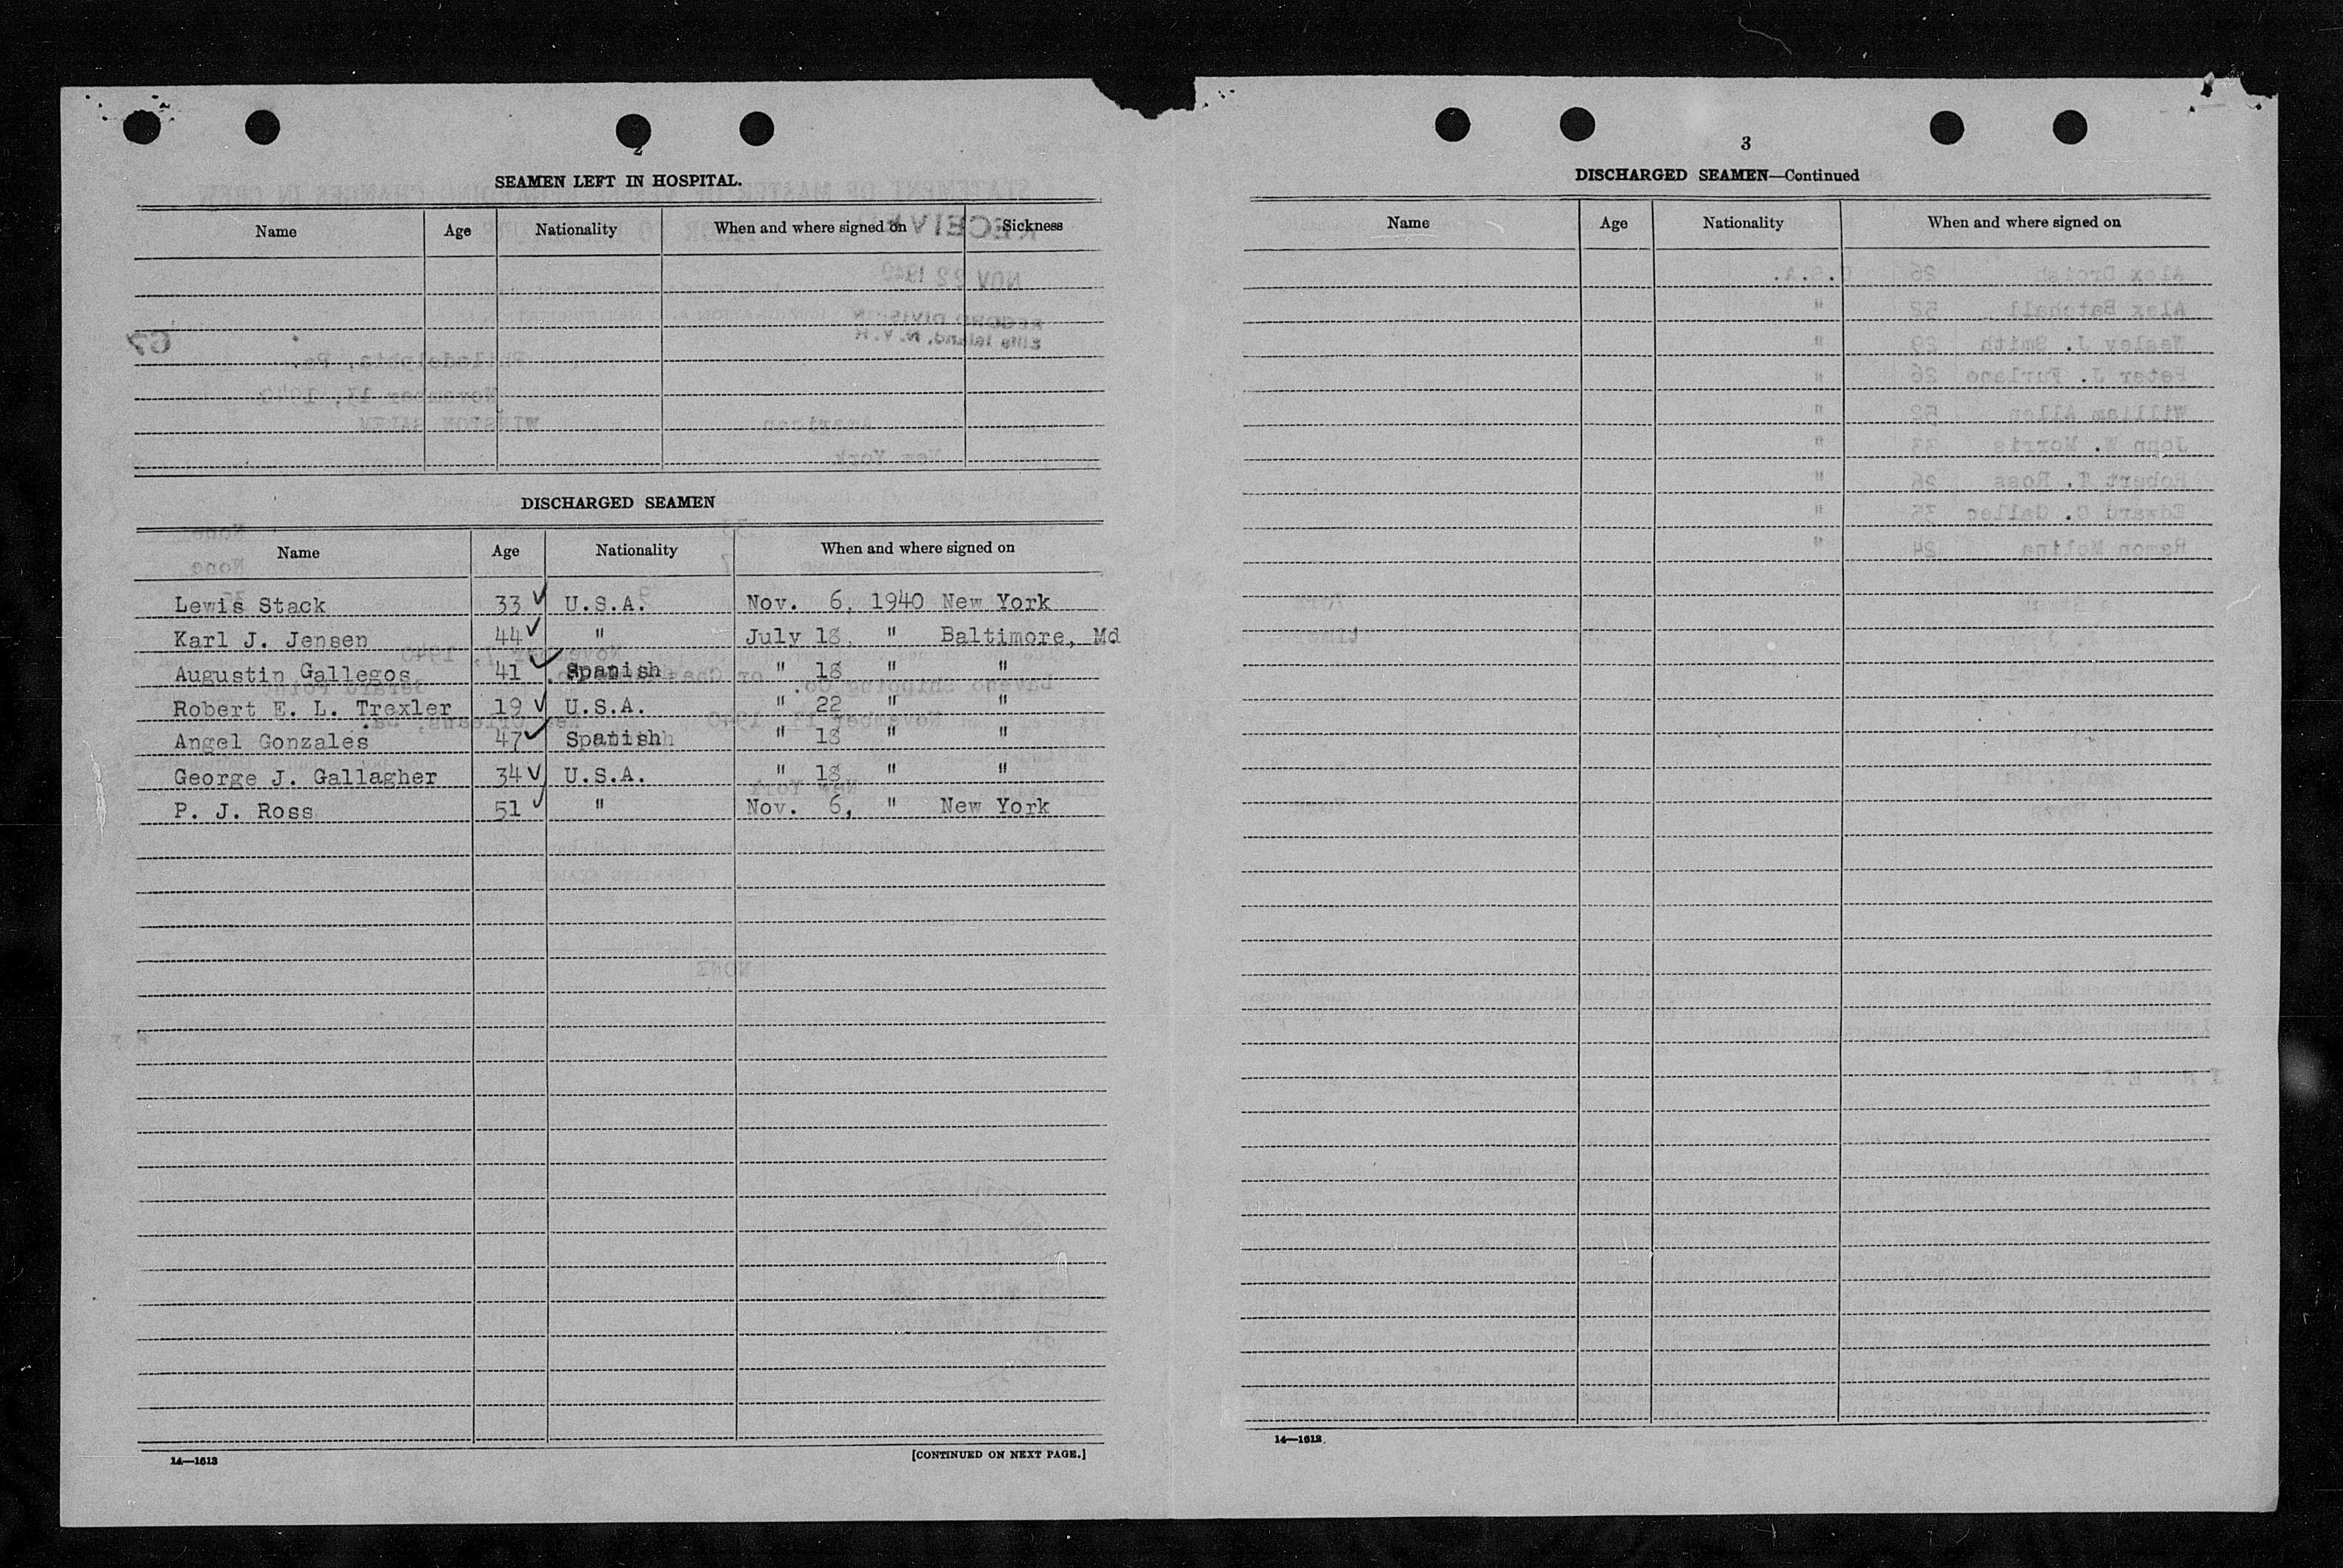 2
SEAMEN LEFT IN HOSPITAL.
Name Age Nationality When and where signed on Sickness
DISCHARGED SEAMEN
Name Age Nationality When and where signed on
Lewis Stack 33 U.S.A. Nov. 6, 1940 New York
Karl J. Jensen 44 " July 18, " Baltimore, Md
Augustin Gallegos 41 Spanish " 18 " "
Robert E. L. Trexler 19 U.S.A. " 22 " "
Angel Gonzales 47 Spanish " 18 " "
George J. Gallagher 34 U.S.A. " 18 " "
P. J. Ross 51 " Nov. 6, " New York
14—1613
[CONTINUED ON NEXT PAGE.]
3
DISCHARGED SEAMEN—Continued
Name Age Nationality When and where signed on
14—1613